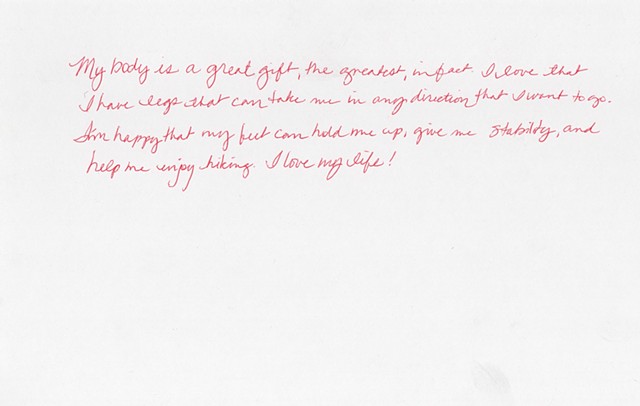 My body is a great gift, the greatest, in fact. I love that
I have legs that can take me in any direction that I want to go.
I'm happy that my feet can hold me up, give me stability, and
help me enjoy hiking. I love my life!